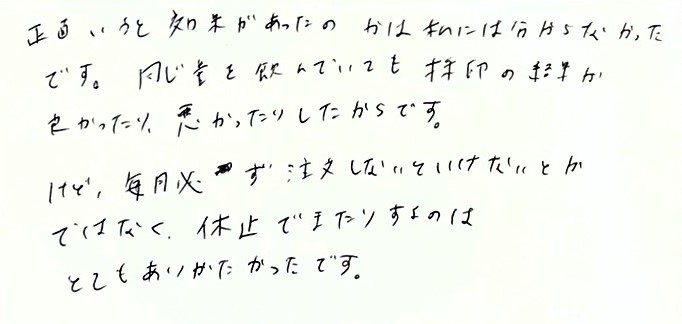 正直いうと効果があったの かは私には分からなかった
です。同じ量を飲んでいても採卵の結果が
良かったり、悪かったりしたからです。
けど、毎月必ず注文しないといけないとか
ではなく、休止できたりするのは
とてもありがたかったです。